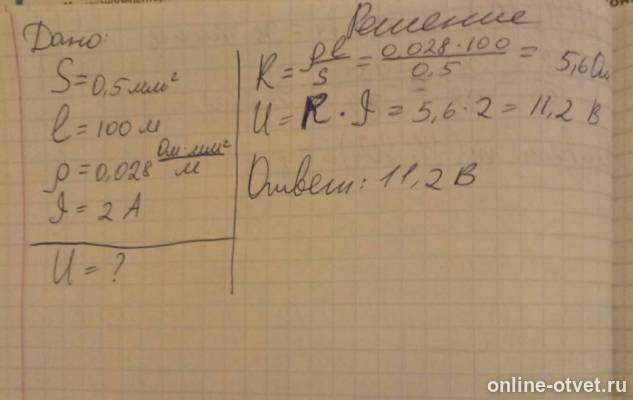 Дано:
S = 0,5 мм²
l = 100 м
ρ = 0,028 Ом·мм²/м
I = 2 А
U = ?
Решение
R = ρl/S = 0,028·100/0,5 = 5,6 Ом
U = R · I = 5,6 · 2 = 11,2 В
Ответ: 11,2 В
online-otvet.ru